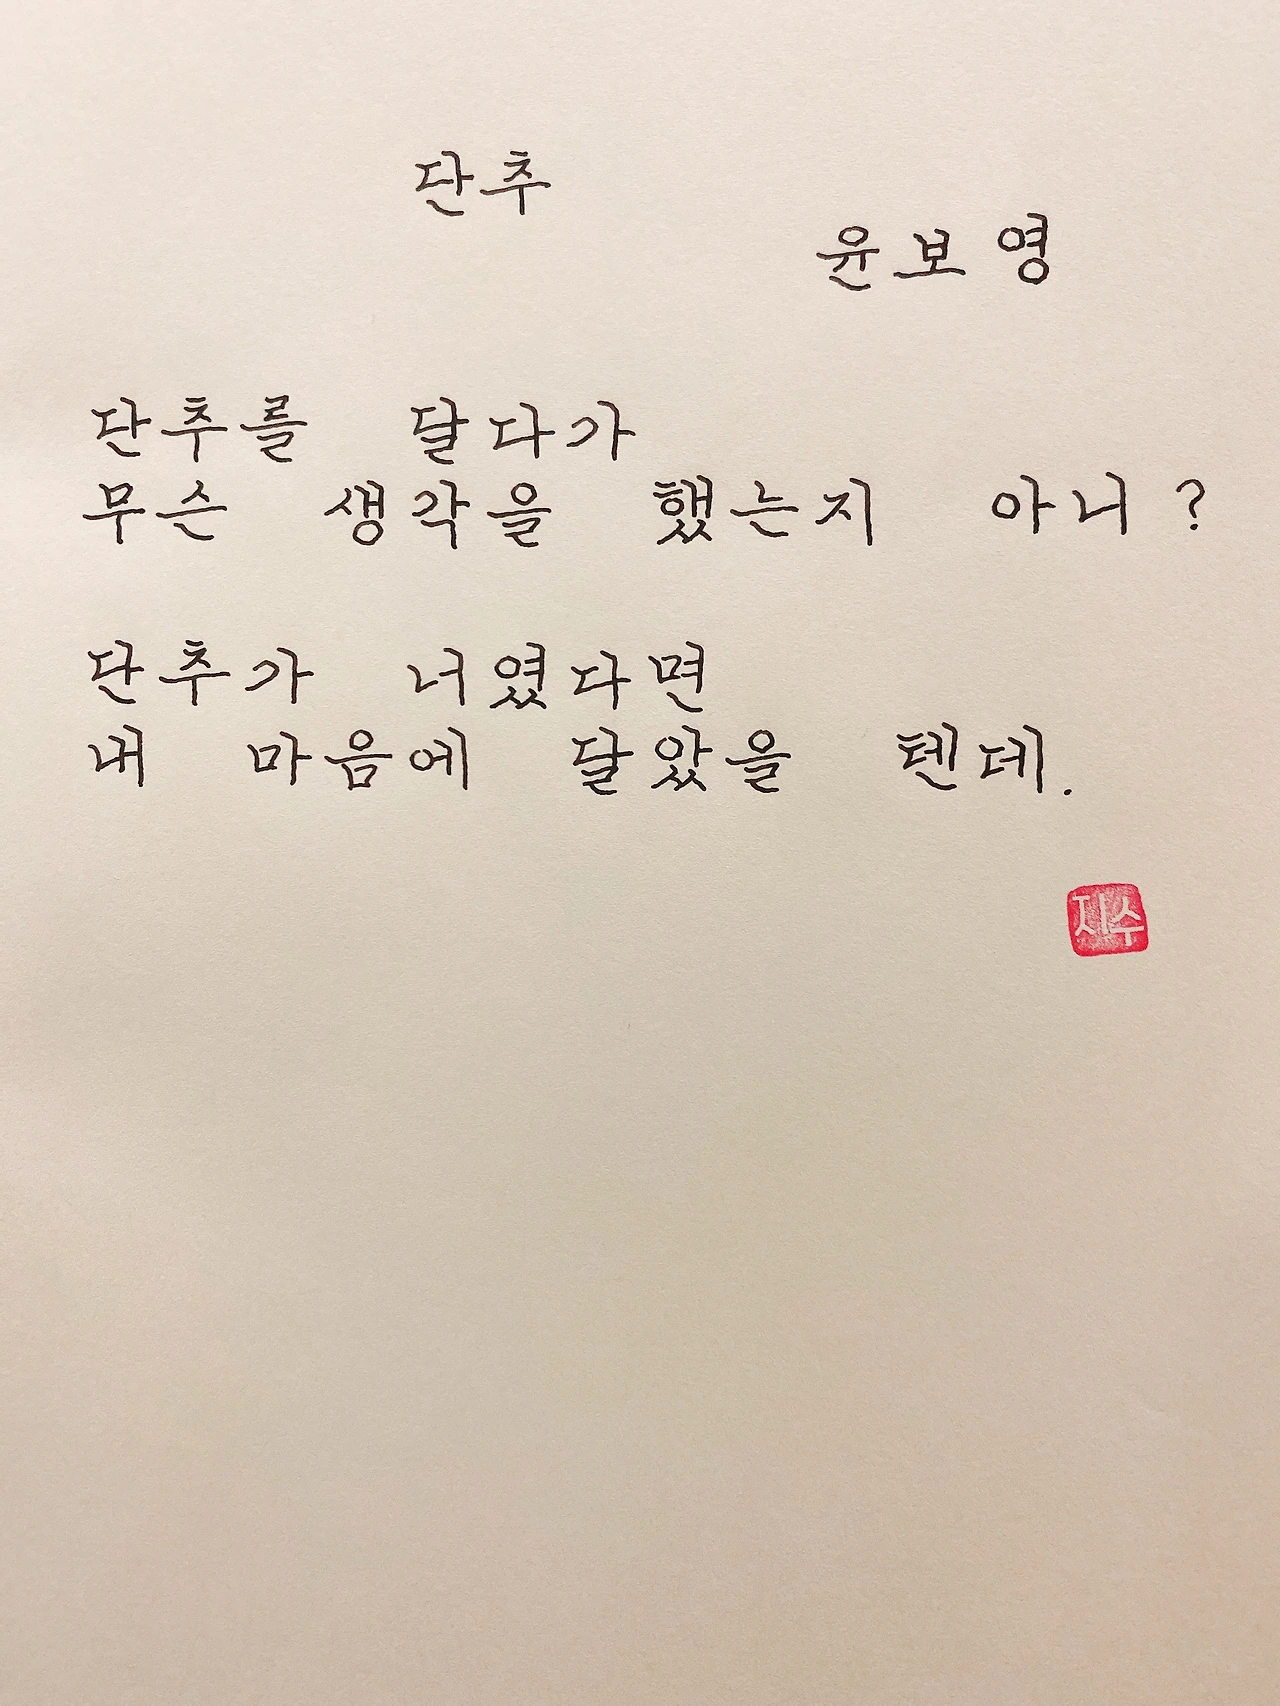 단추
윤보영
단추를 달다가
무슨 생각을 했는지 아니?
단추가 너였다면
내 마음에 달았을 텐데.
지수